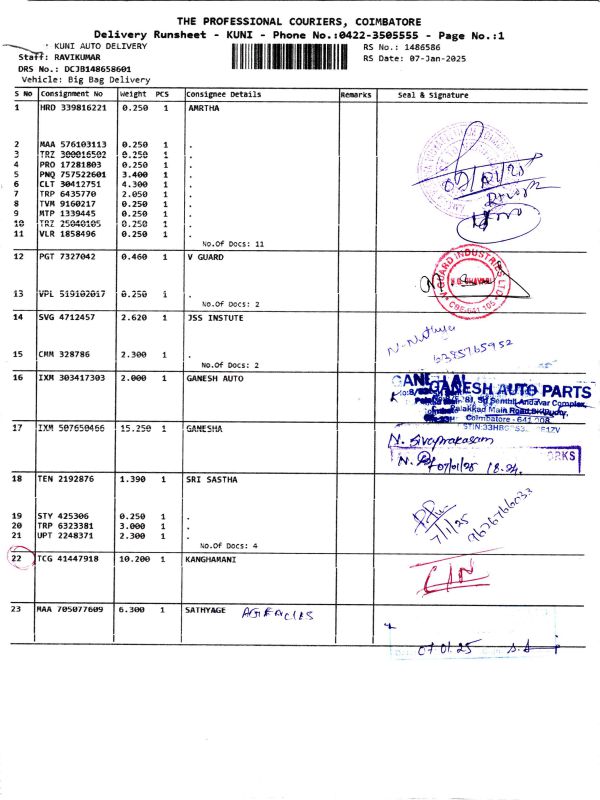 THE PROFESSIONAL COURIERS, COIMBATORE
Delivery Runsheet - KUNI - Phone No.:0422-3505555 - Page No.:1
: KUNI AUTO DELIVERY
RS No.: 1486586
Staff: RAVIKUMAR
RS Date: 07-Jan-2025
DRS No.: DCJB148658601
Vehicle: Big Bag Delivery
S No Consignment No Weight PCS Consignee Details Remarks Seal & Signature
1 HRD 339816221 0.250 1 AMRTHA
2 MAA 576103113 0.250 1 .
3 TRZ 300016502 0.250 1 .
4 PRO 17281803 0.250 1 .
5 PNQ 757522601 3.400 1 .
6 CLT 30412751 4.300 1 .
7 TRP 6435770 2.050 1 .
8 TVM 9160217 0.250 1 .
9 MTP 1339445 0.250 1 .
10 TRZ 25040105 0.250 1 .
11 VLR 1858496 0.250 1 .
No.Of Docs: 11
12 PGT 7327042 0.460 1 V GUARD
V GUARD INDUSTRIES LTD.
CBE-641 105
13 VPL 519102017 0.250 1 .
No.Of Docs: 2
14 SVG 4712457 2.620 1 JSS INSTUTE
N. Nithya
6385765952
15 CMM 328786 2.300 1 .
No.Of Docs: 2
16 IXM 303417303 2.000 1 GANESH AUTO
GANESH AUTO PARTS
Sri Senthil Andavar Complex,
Palakkad Main Road,
Coimbatore - 641 008.
17 IXM 507650466 15.250 1 GANESHA
N. Sivaprakasam
07/01/25 18.24.
18 TEN 2192876 1.390 1 SRI SASTHA
7/1/25
9626766033
19 STY 425306 0.250 1 .
20 TRP 6323381 3.000 1 .
21 UPT 2248371 2.300 1 .
No.Of Docs: 4
22 TCG 41447918 10.200 1 KANGHAMANI
CIN
23 MAA 705077609 6.300 1 SATHYAGE AGENCIES
07.01.25